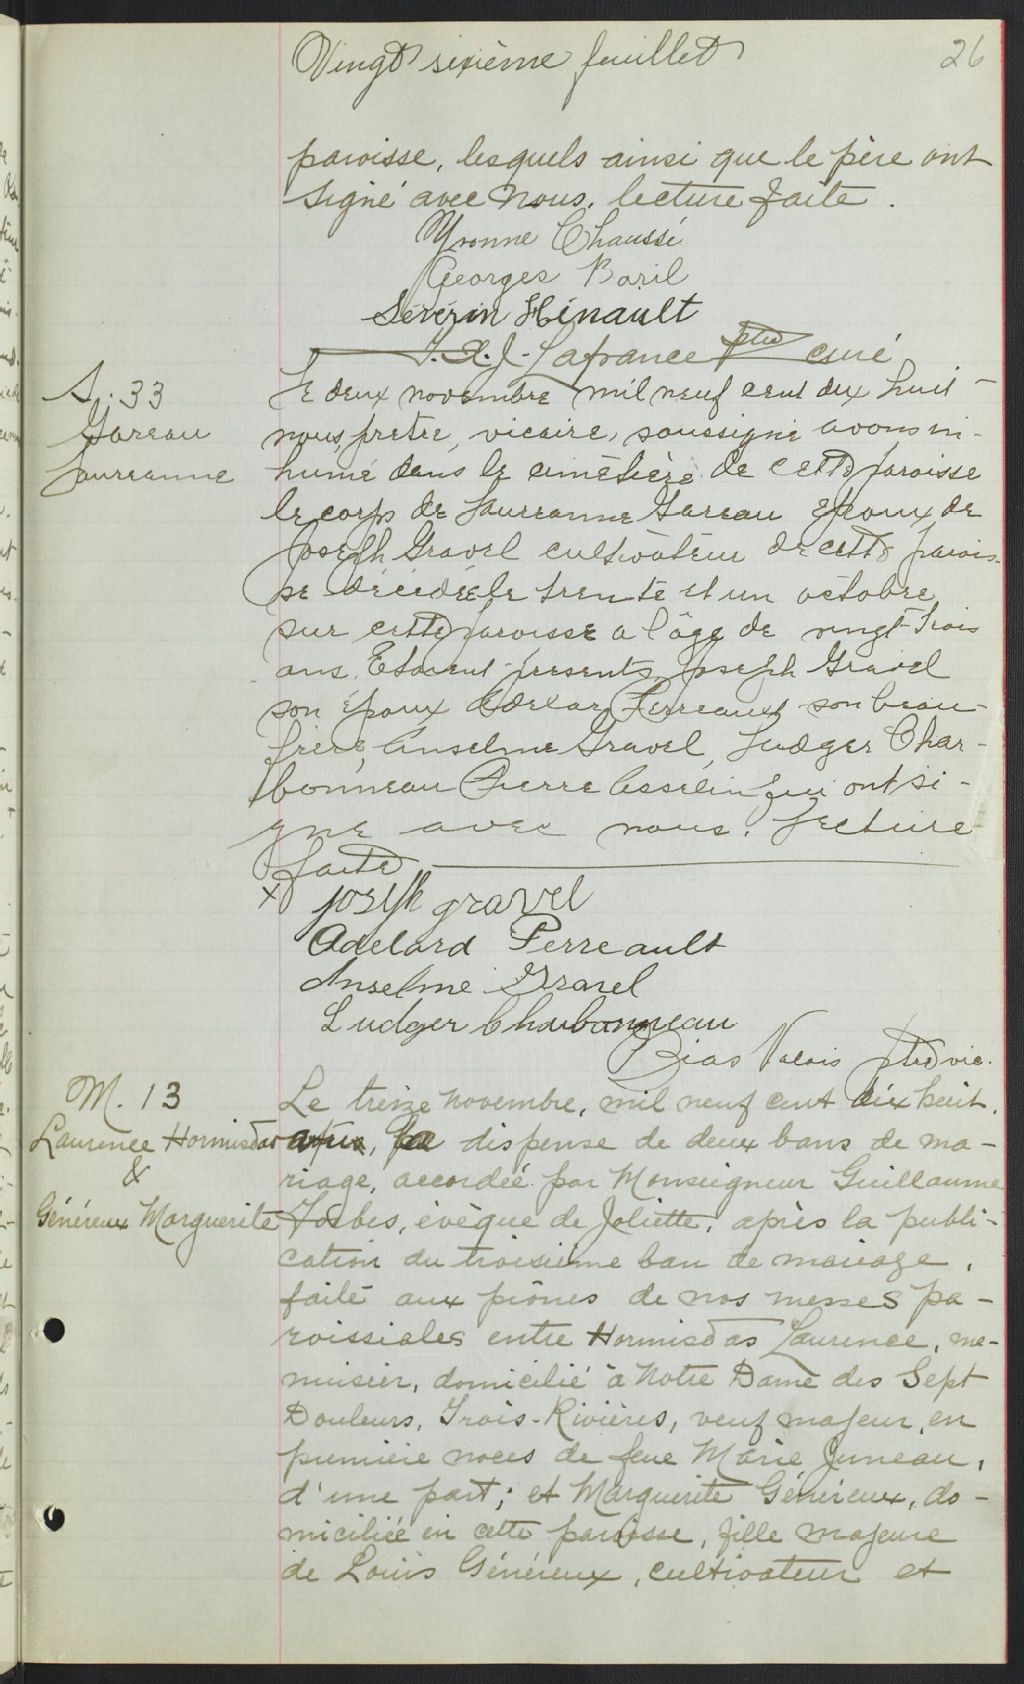 Vingt sixième feuillet
26
paroisse, lesquels ainsi que le père ont
signé avec nous, lecture faite.
Yvonne Chaussé
Georges Baril
Sévérin Hénault
J.-Lafrance Ptre curé
S. 33
Gareau
Laureanne
Le deux novembre mil neuf cent dix huit
nous, prêtre, vicaire, soussigné avons in-
humé dans le cimetière de cette paroisse
le corps de Laureanne Gareau epoux de
Joseph Gravel cultivateur de cette parois-
se décédée le trente et un octobre
sur cette paroisse a l'âge de vingt-trois
ans. Etaient présents Joseph Gravel
son époux Adelar Perreault son beau-
frère, Anselme Gravel, Ludger Char-
bonneau Pierre Asselin qui ont si-
gné avec nous. Lecture
faite
x Joseph gravel
Adelard Perreault
Anselme Gravel
Ludger Charbonneau
Bias Valois ptre vic.
M. 13
Laurence Hormisdas
&
Généreux Marguerite
Le treize novembre, mil neuf cent dix huit,
la dispense de deux bans de ma-
riage, accordée par Monseigneur Guillaume
Forbes, évêque de Joliette, après la publi-
cation du troisième ban de mariage,
faite aux prônes de nos messes pa-
roissiales entre Hormisdas Laurence, me-
nuisier, domicilié à Notre Dame des Sept
Douleurs, Trois-Rivières, veuf majeur, en
premiere noces de feue Marie Juneau,
d'une part; et Marguerite Généreux, do-
miciliée en cette paroisse, fille majeure
de Louis Généreux, cultivateur et